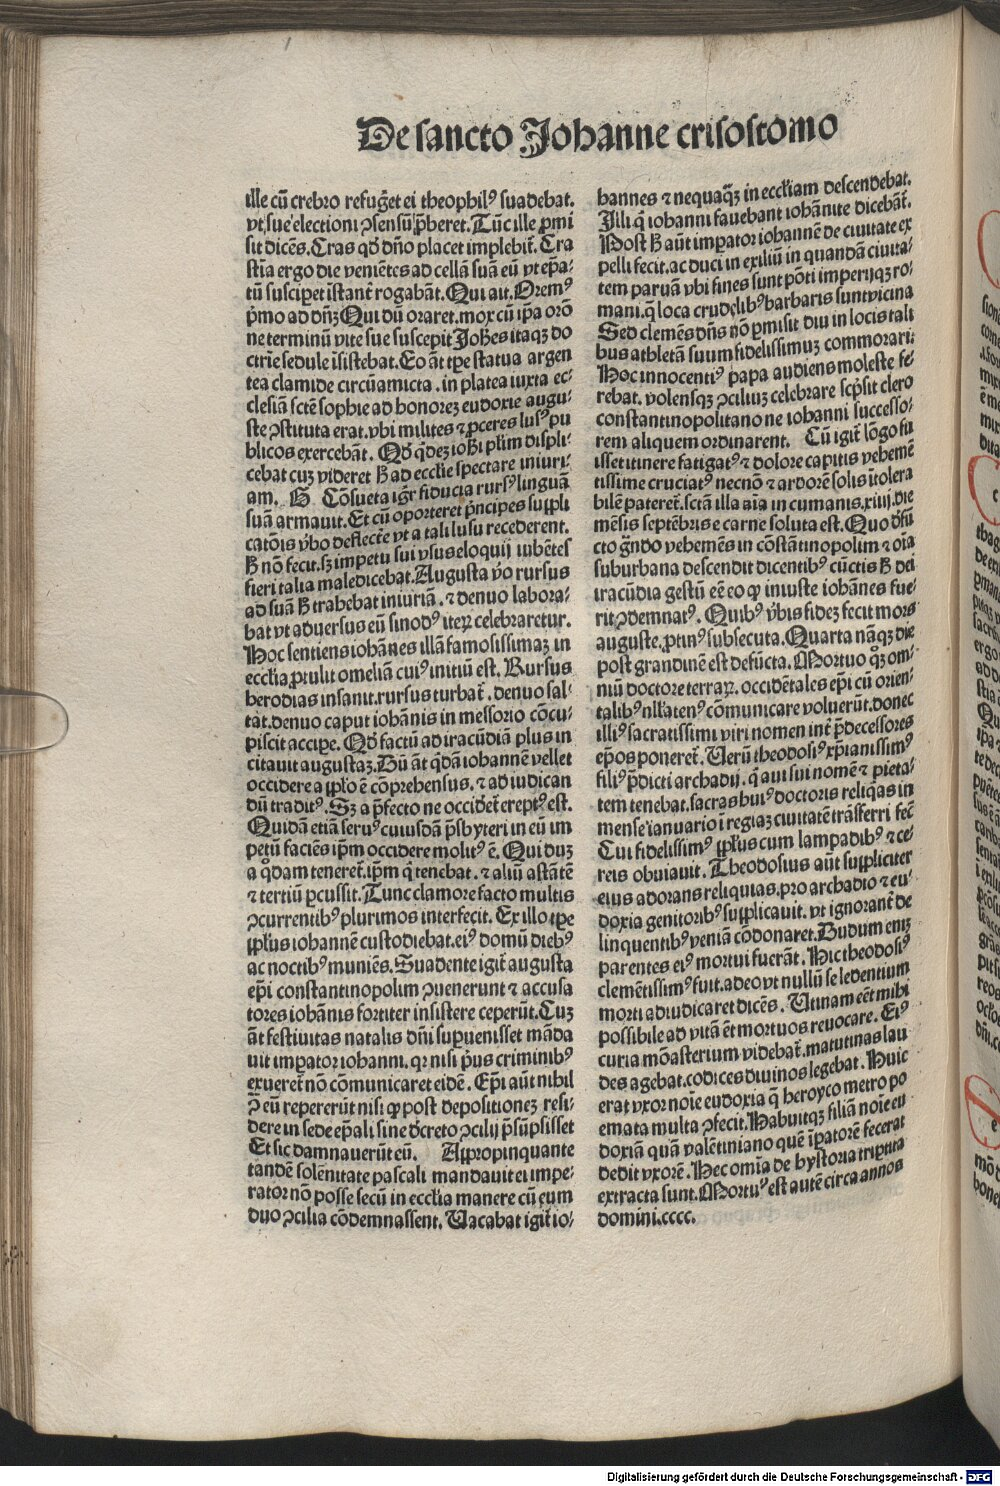 De sancto Johanne crisostomo
ille cū crebro refug̃et ei theophilꝰ suadebat.
vt sue electioni ꝯsensū p̄beret. Tūc ille ꝓmi
sit dicēs. Cras qd̄ dño placet implebit̃. Cra
stīa ergo die veniētes ad cellā suā eū vt ep̄a-
tū suscip̲et īstant̃ rogabāt. Qui ait. Oremꝰ
p̄mo ad dñꝫ Qui dū oraret. mox cū ip̄a orō
ne terminū vite sue suscepit Joh̄es itaqꝫ do
ctrīe sedule īsistebat. Eo āt tp̄e statua argen
tea clamide circūamicta. in platea iuxta ec-
clesiā sctē sophie ad honoreꝫ eudoxie augu-
ste ꝯstituta erat. vbi milites ⁊ ꝓceres lusꝰ pu
blicos exercebāt. Qd̄ q̇deꝫ ioh̄i pl̄im displi-
cebat cuꝫ videret ħ ad ecclīe spectare iniuri-
am. ħ Cōsueta igr̃ fiducia rursꝰ linguā
suā armauit. Et cū oporteret p̄ncipes suppli
catōis v̄bo deflecte̅ vt a tali lusu recederent.
ħ nō fecit. sꝫ impetu sui vsus eloquij iubētes
fieri talia maledicebat. Augusta v̄o rursus
ad suā ħ trahebat iniuriā. ⁊ denuo labora-
bat vt aduersus eū sinodꝰ iteꝝ celebraretur.
Hoc sentiens iohānes illā famosissimaꝫ in
ecclīa ꝓtulit omeliā cuiꝰ initiū est. Rursus
herodias insanit. rursus turbat̃. denuo sal-
tat. denuo caput iohānis in messorio cōcu-
piscit accipe̅. Qd̄ factū ad iracūdiā plus in
citauit augustaꝫ. Dū āt q̇dā iohannē vellet
occidere a pp̄lo ē cōprehensus. ⁊ ad iudican
dū traditꝰ. Sꝫ a p̄fecto ne occidet̃ ereptꝰ est.
Quidā etiā seruꝰ cuiusdā p̄sbyteri in eū im
petū faciēs ip̄m occidere molitꝰ ē. Qui duꝫ
a q̊dam teneret̃. ip̄m q̇ tenebat. ⁊ aliū astātē
⁊ tertiū ꝑcussit. Tunc clamore facto multis
ꝯcurrentibꝰ plurimos interfecit. Ex illo tp̄e
pp̄lus iohannē custodiebat. eiꝰ domū diebꝰ
ac noctibꝰ muniēs. Suadente igit̃ augusta
ep̄i constantinopolim ꝯuenerunt ⁊ accusa
tores iohānis fortiter insistere ceperūt. Cuꝫ
āt festiuitas natalis dñi suꝑuenisset māda
uit imꝑator iohanni. qꝛ nisi p̄us criminibꝰ
exueret̃ nō cōmunicaret eidē. Ep̄i aūt nihil
ꝯ̄ eū repererūt nisi ꝙ post depositioneꝫ resi-
dere in sede ep̄ali sine dc̄reto ꝯcilij p̄sūpsisset
Et sic damnauerūt eū. Appropinquante
tandē solēnitate pascali mandauit ei impe-
rator nō posse secū in ecclīa manere cū eum
duo ꝯcilia cōdemnassent. Uacabat igit̃ io-
hannes ⁊ nequaq̄ꝫ in eccl̄iam descendebat.
Illi q̇ iohanni fauebant iohānite dicebāt̃.
Post ħ aūt imꝑator iohannē de ciuitate ex
pelli fecit. ac duci in exiliū in quandā ciuita-
tem paruā vbi fines sunt pōti imperijqꝫ ro-
mani. q̄ loca crudelibꝰ barbaris sunt vicina
Sed clemēs dñs nō ꝑmisit diu in locis tali
bus athletā suum fidelissimuꝫ commorari:
Hoc innocentiꝰ papa audiens moleste fe-
rebat. volensqꝫ ꝯciliuꝫ celebrare scp̄sit clero
constantinopolitano ne iohanni successo-
rem aliquem ordinarent. Cū igit̃ lōgo fu
isset itinere fatigatꝰ ⁊ dolore capitis vehemē
tissime cruciatꝰ necnō ⁊ ardorē solis ītolera
bilē pateret̃. sctā illa aīa in cumanis. xiiij. die
mēsis septēbris e carne soluta est. Quo dc̄fū
cto grādo vehemēs in cōstātinopolim ⁊ oīa
suburbana descendit dicentibꝰ cūctis ħ dei
iracūdia gestū eē eo ꝙ iniuste iohānes fue-
rit ꝯdemnatꝰ. Quibꝰ v̄bis fideꝫ fecit mors
auguste. ꝓtinꝰ subsecuta. Quarta nāqꝫ die
post grandinē est defūcta. Mortuo q̊ꝫ om-
niū doctore terraꝝ. occidētales ep̄i cū orien-
talibꝰ nllatenꝰ cōmunicare voluerūt. donec
illiꝰ sacratissimi viri nomen int̃ p̄decessores
ep̄os poneret̃. Uerū theodosiꝰ xp̄ianissimꝰ
filiꝰ p̄dicti archadij. q̇ aui sui nomē ⁊ pieta-
tem tenebat. sacras huiꝰ doctoris reliq̇as in
mense ianuario ī regiaꝫ ciuitatē trāsferri fec̄
Cui fidelissimꝰ pp̄lus cum lampadibꝰ ⁊ ce-
reis obuiauit. Theodosius aūt suppliciter
eius adorans reliquias. pro archadio ⁊ eu-
doxia genitoribꝰ supplicauit. vt ignorant̃ de
linquentibꝰ veniā cōdonaret. Dudum eniꝫ
parentes eiꝰ mortui fuerāt. Hic theodosiꝰ
clemētissimꝰ fuit. adeo vt nullū se ledentium
morti adiudicaret dicēs. Utinam eēt mihi
possibile ad vitā et̄ mortuos reuocare. Eiꝰ
curia mōasterium videbat̃. matutinas lau
des agebat. codices diuinos legebat. Huic
erat vxor noīe eudoxia q̄ heroyco metro po
emata multa ꝯfecit. Habuitqꝫ filiā noīe eu
doxiā quā valētiniano quē īꝑatorē fecerat
dedit vxorē. Hec omīa de hystoria triptita
extracta sunt. Mortuꝰ est autē circa annos
domini. cccc.
Digitalisierung gefördert durch die Deutsche Forschungsgemeinschaft - DFG